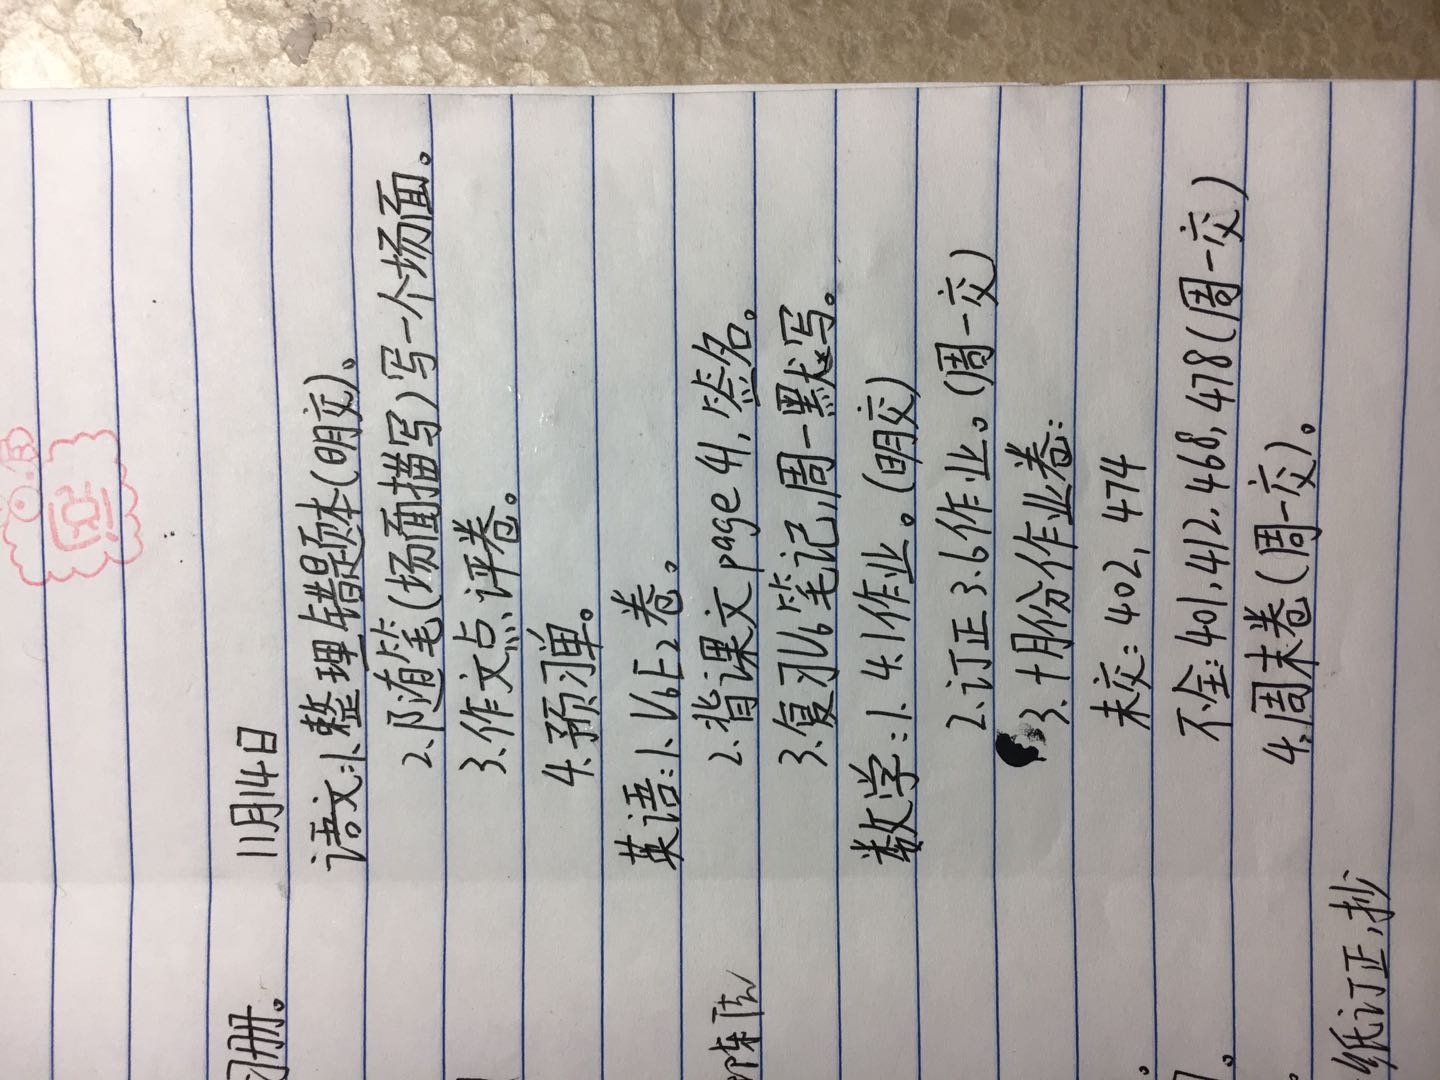 习册。
11月14日
语文:1.整理错题本(明交)。
2.随笔(场面描写)写一个场面。
3.作文点评卷。
4.预习单。
英语:1.U6E2卷。
2.背课文page 41,签名。
3.复习U6笔记,周一默写。
数学:1. 4.1作业。(明交)
2.订正3.6作业。(周一交)
3.十月份作业卷:
未交:402,474
不全:401,412,468,478(周一交)
4.周末卷(周一交)。
纸订正,抄